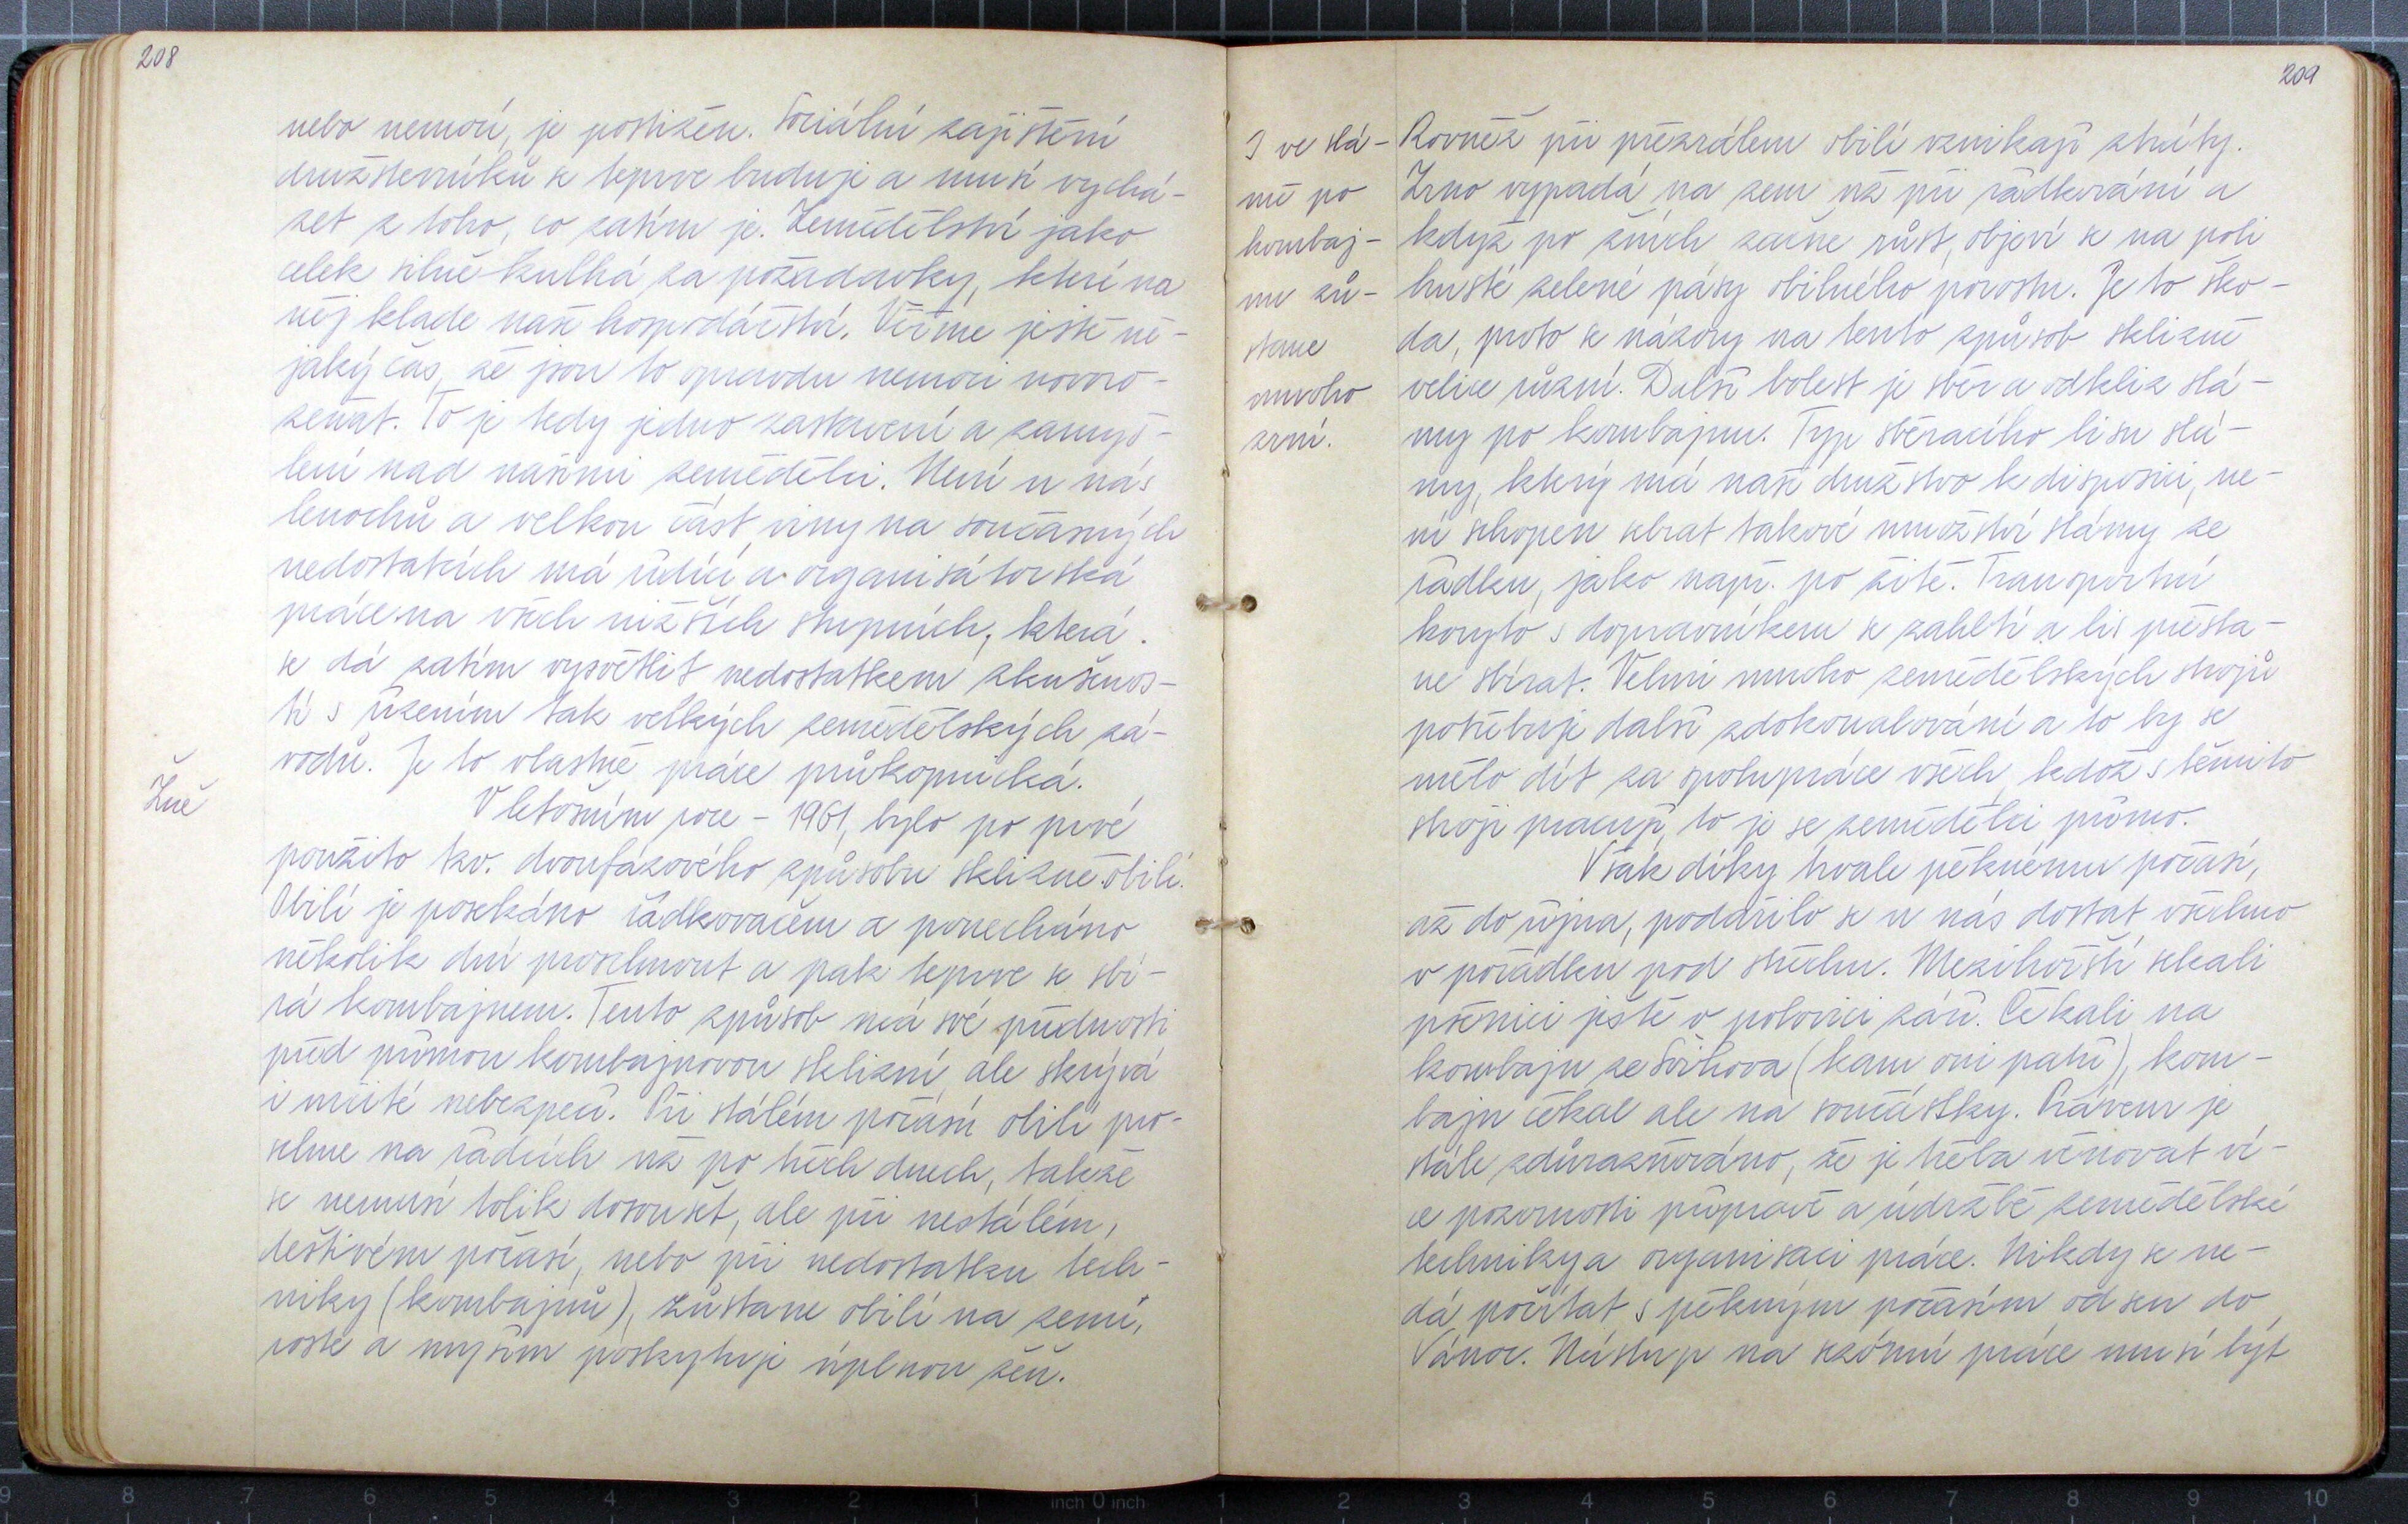 208
nebo nemocí, je postižen. Sociální zajištění
družstevníků se teprve buduje a musí vychá-
zet z toho, co zatím je. Zemědělství jako
celek silně kulhá za požadavky, které na
něj klade naše hospodářství. Věřme ještě ně-
jaký čas, že jsou to opravdu nemoci novoro-
zeňat. To je tedy jedno zastavení a zamyš-
lení nad našimi zemědělci. Není u nás
lenochů a velkou část viny na současných
nedostatcích má řídící a organisátorská
práce na všech nižších stupních, která
se dá zatím vysvětlit nedostatkem zkušenos-
tí s řízením tak velkých zemědělských zá-
vodů. Je to vlastně práce průkopnická.
Žně
V letošním roce - 1961, bylo po prvé
použito tzv. dvoufázového způsobu sklizně obilí.
Obilí je posekáno řádkovačem a ponecháno
několik dní proschnout a pak teprve se sbí-
rá kombajnem. Tento způsob má své přednosti
před přímou kombajnovou sklizní ale skrývá
i určité nebezpečí. Při stálém počasí obilí pro-
schne na řádcích už po třech dnech, takže
se nemusí tolik dosoušet, ale při nestálém,
deštivém počasí, nebo při nedostatku tech-
niky (kombajnů), zůstane obilí na zemi,
roste a myším poskytuje úplnou žeň.
209
I ve slá-
mě po
kombaj-
nu zů-
stane
mnoho
zrní.
Rovněž při přezrálem obilí vznikají ztráty.
Zrno vypadá na zem už při řádkování a
když po žních začne růst, objeví se na poli
husté zelené pásy obilného porostu. Je to ško-
da, proto se názory na tento způsob sklizně
velice různí. Další bolest je sběr a odkliz slá-
my po kombajnu. Typ sběracího lisu slá-
my, který má naše družstvo k disposici, ne-
ní schopen sebrat takové množství slámy ze
řádku, jako např. po žitě. Transportní
koryto s dopravníkem se zahltí a lis přesta-
ne sbírat. Velmi mnoho zemědělských strojů
potřebuje další zdokonalování a to by se
mělo dít za spolupráce všech, kdož s těmito
stroji pracují, to je se zemědělci přímo.
Však díky trvale pěknému počasí,
až do října, podařilo se u nás dostat všechno
v pořádku pod střechu. Mezihoršti sekali
pšenici ještě v polovici září. Čekali na
kombajn ze Sőihova (kam oni patří), kom-
bajn čekal ale na součástky. Právem je
stále zdůrazňováno, že je třeba věnovat ví-
ce pozornosti přípravě a údržbě zemědělské
techniky a organisaci práce. Nikdy se ne-
dá počítat s pěkným počasím od sen do
Vánoc. Nástup na sezónní práce musí být